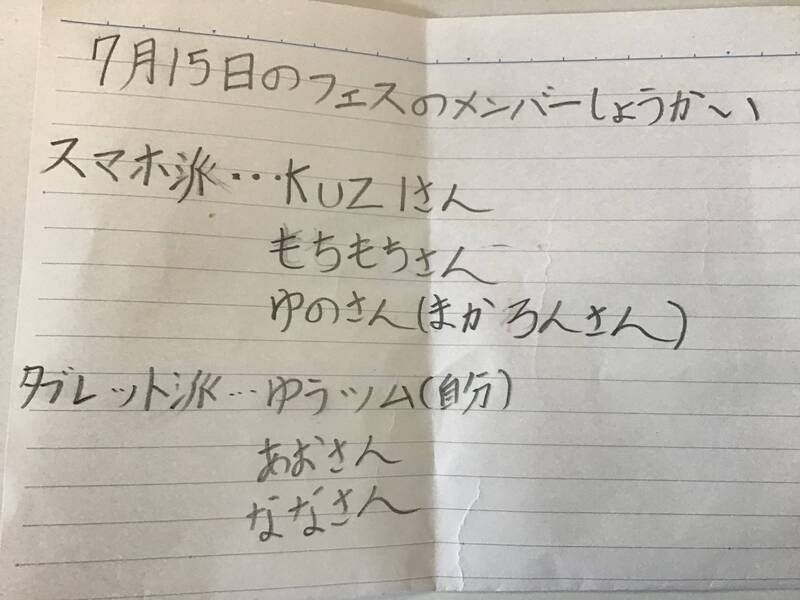 7月15日のフェスのメンバーしょうか〜い
スマホ派…KUZIさん
もちもちさん
ゆのさん(まかろんさん)
タブレット派…ゆうツム(自分)
あおさん
ななさん